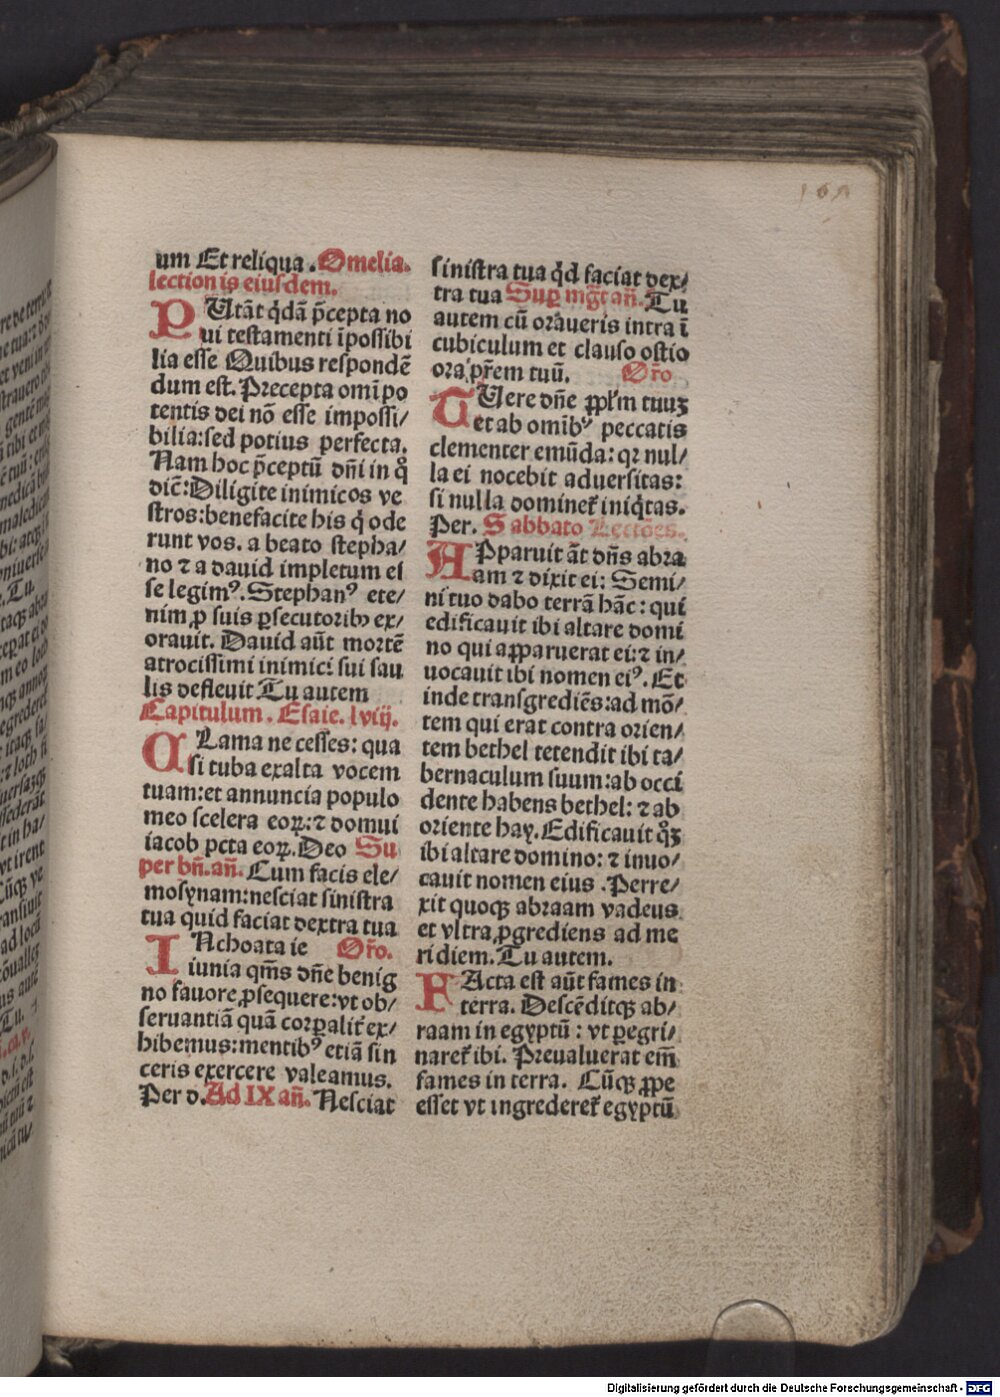 um Et reliqua . Omelia.
lection is eiusdem.
PUtāt q̄dā p̄cepta no
ui testamenti īpossibi
lia esse Quibus respondē
dum est. Precepta omī po
tentis dei nō esse impossi/
bilia: sed potius perfecta.
Nam hoc p̄ceptū dn̄i in q̊
dic̄: Diligite inimicos ve
stros: benefacite his q̇ ode
runt vos. a beato stepha/
no ⁊ a dauid impletum es
se legimꝰ. Stephanꝰ ete/
nim ꝓ suis ꝑsecutoribꝫ ex/
orauit. Dauid aūt mortē
atrocissimi inimici sui sau
lis defleuit Tu autem
Capitulum . Esaie. lviij.
CLama ne cesses: qua
si tuba exalta vocem
tuam: et annuncia populo
meo scelera eoꝝ: ⁊ domui
iacob pcta eoꝝ. Deo Su
per bn̄. an̄. Cum facis ele/
mosynam: nesciat sinistra
tua quid faciat dextra tua
INchoata ie Or̄o.
iunia qm̄s dn̄e benig
no fauore ꝓsequere: vt ob/
seruantiā quā corꝑalit᷑ ex/
hibemus: mentibꝰ etiā sin
ceris exercere valeamus.
Per d. Ad IX an̄. Nesciat
sinistra tua q̇d faciat dex/
tra tua Suꝑ mḡt an̄. Tu
autem cū oraueris intra ī
cubiculum et clauso ostio
ora pr̄em tuū. Or̄o
TUere dn̄e ppl̄m tuuꝫ
et ab omibꝰ peccatis
clementer emūda: qꝛ nul/
la ei nocebit aduersitas:
si nulla dominet᷑ iniq̇tas.
Per. Sabbato Lectōes.
APparuit āt dn̄s abra
am ⁊ dixit ei: Semi/
ni tuo dabo terrā hāc: qui
edificauit ibi altare domi
no qui apparuerat ei: ⁊ in/
uocauit ibi nomen eiꝰ. Et
inde transgrediēs: ad mō/
tem qui erat contra orien/
tem bethel tetendit ibi ta/
bernaculum suum: ab occi
dente habens bethel: ⁊ ab
oriente hay. Edificauit q̊ꝫ
ibi altare domino: ⁊ inuo/
cauit nomen eius . Perre/
xit quoqꝫ abraam vadens
et vltra ꝓgrediens ad me
ridiem. Tu autem.
FActa est aūt fames in
terra. Descēditqꝫ ab/
raam in egyptū: vt ꝑegri/
naret᷑ ibi. Preualuerat em̄
fames in terra. Cūqꝫ ꝓpe
esset vt ingrederet᷑ egyptū
Digitalisierung gefördert durch die Deutsche Forschungsgemeinschaft - DFG